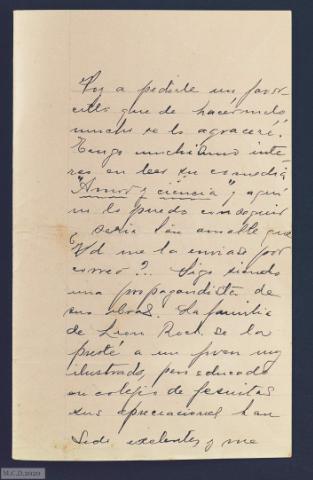 Voy a pedirle un favor-
cillo que de hacérmelo
mucho se lo agraceré.
Tengo muchísimo inte-
res en leer su comedia
"Amor y ciencia" y aquí
no lo puedo conseguir
¿ seria Ud tan amable que
me la enviase por
correo?. Sigo siendo
una propagandista de
sus obras. La familia
de Leon Roch se la
presté a un joven muy
ilustrado, pero educado
en colejio de jesuitas
sus apreciaciones han
sido exelentes y me
M.C.D. 2020